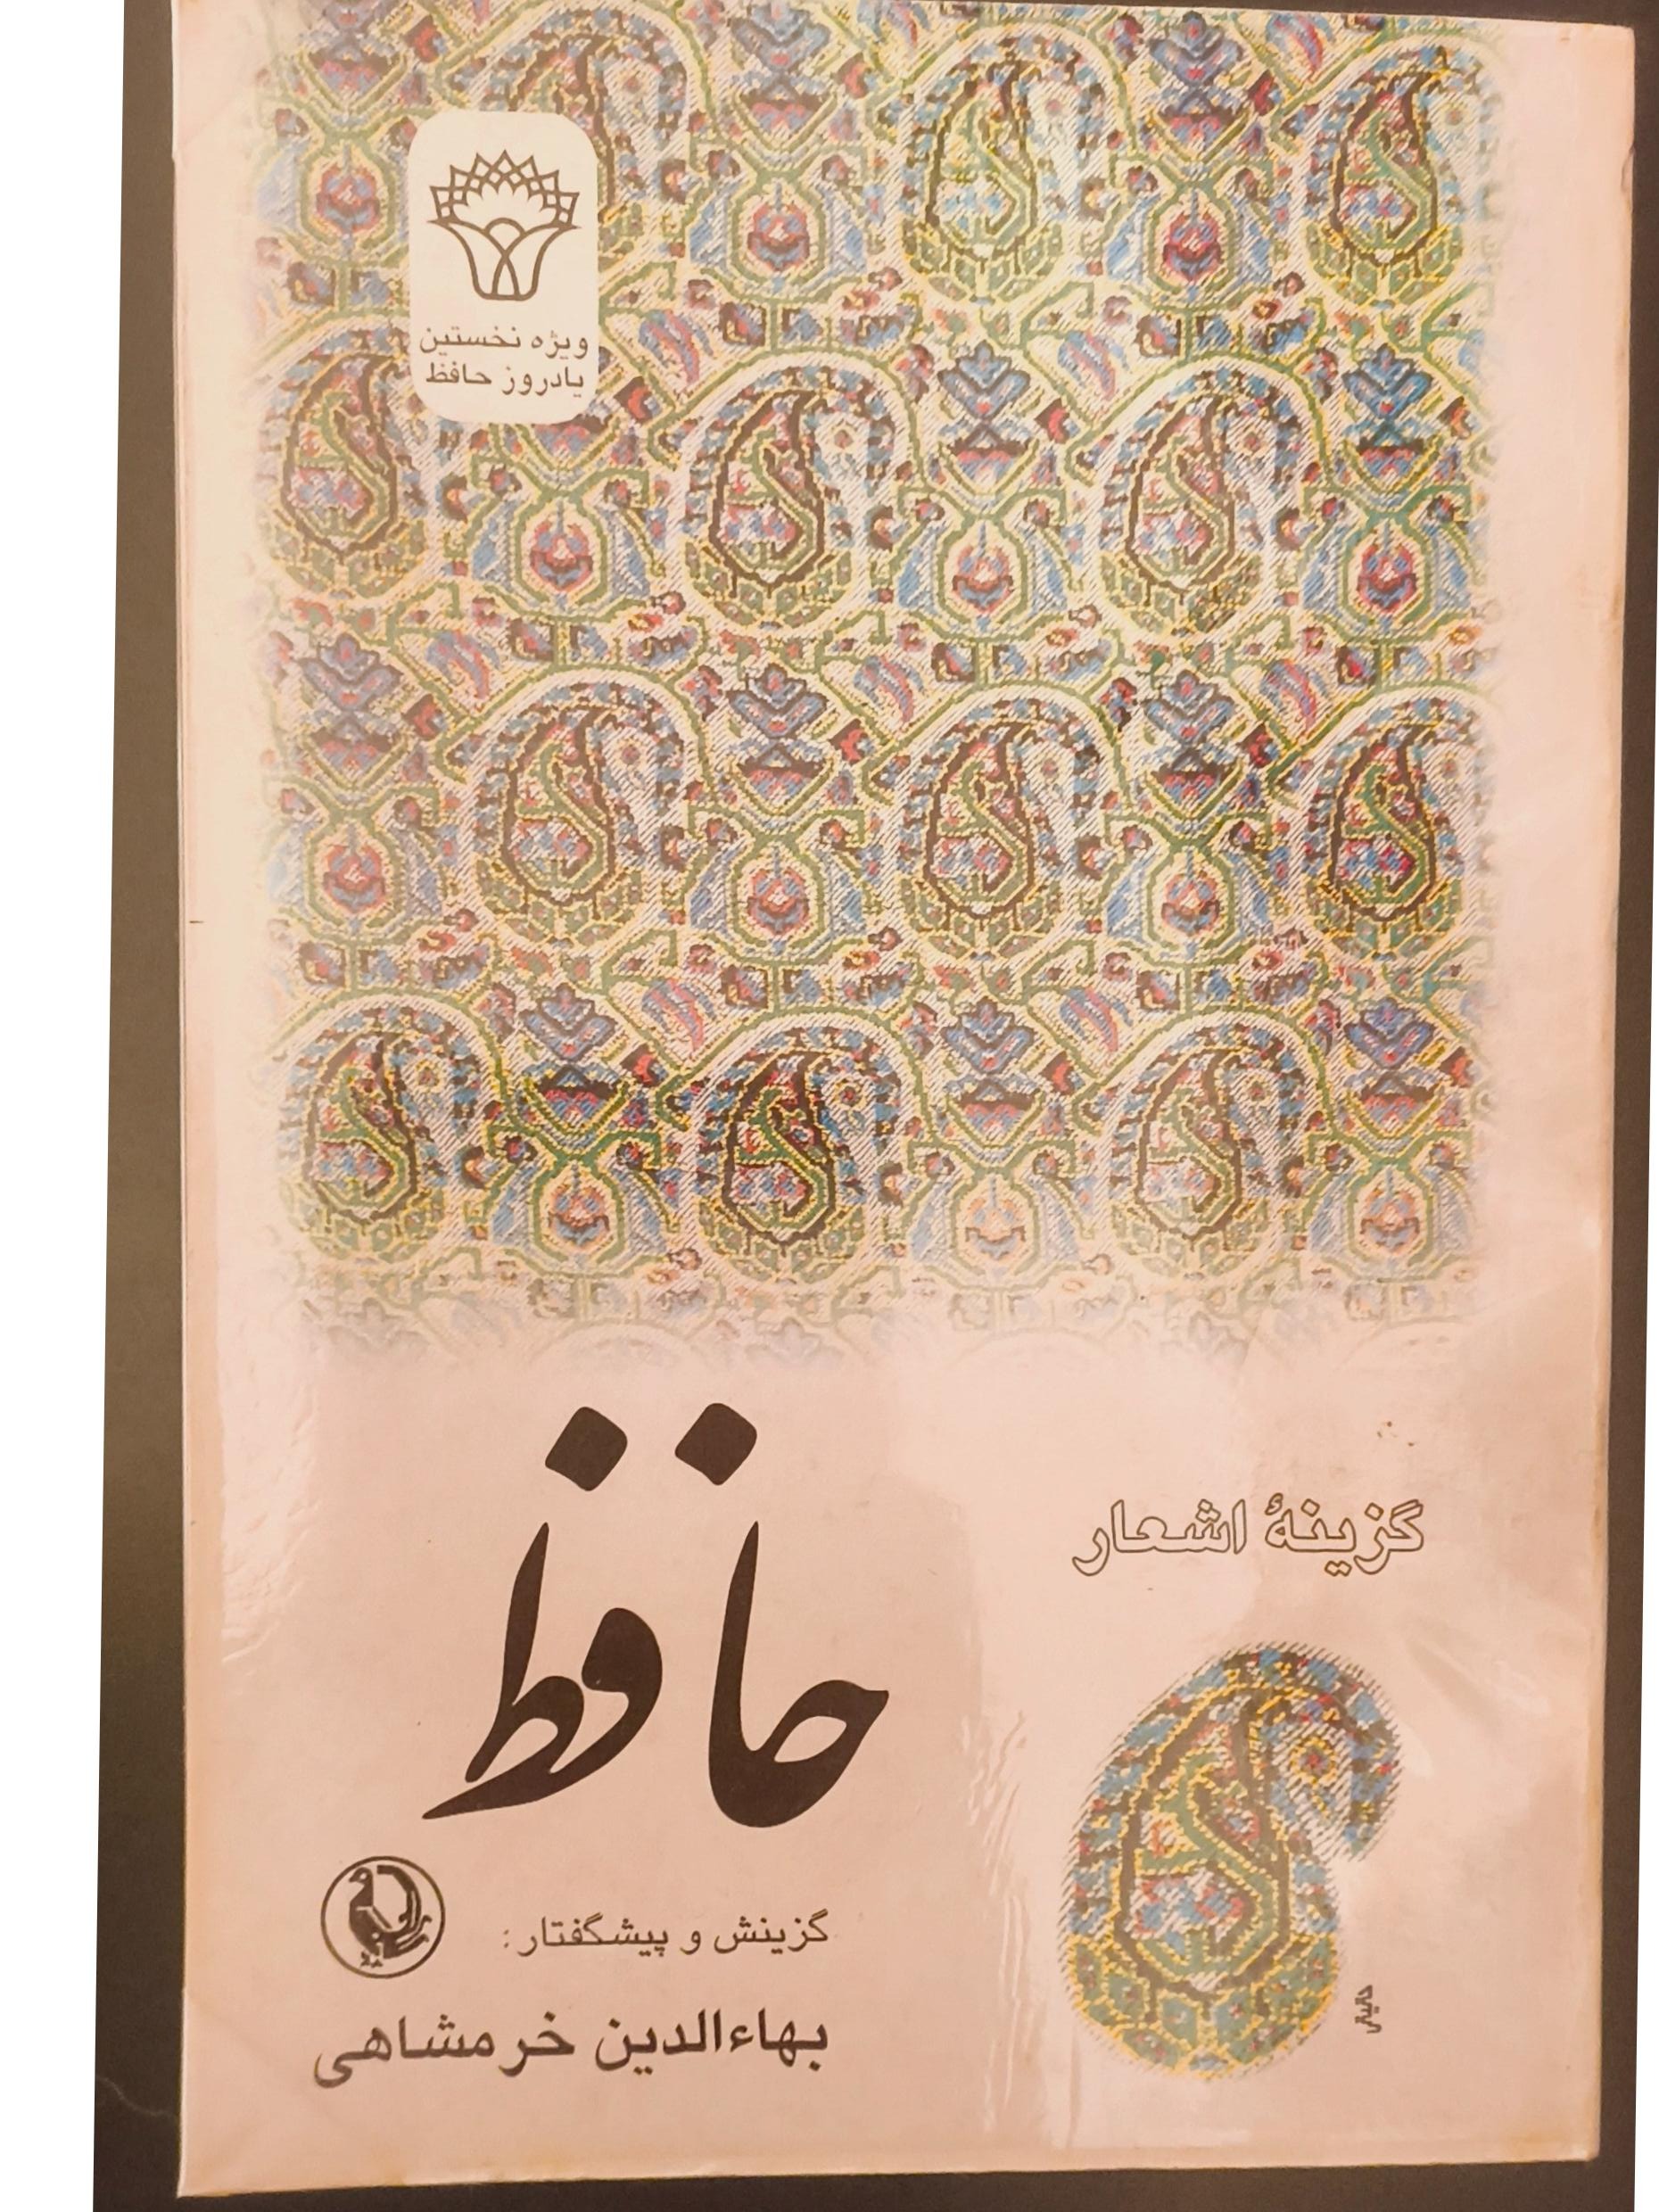 ویژه نخستین
یادروز حافظ
گزینهٔ اشعار
حافظ
گزینش و پیشگفتار:
بهاءالدین خرمشاهی